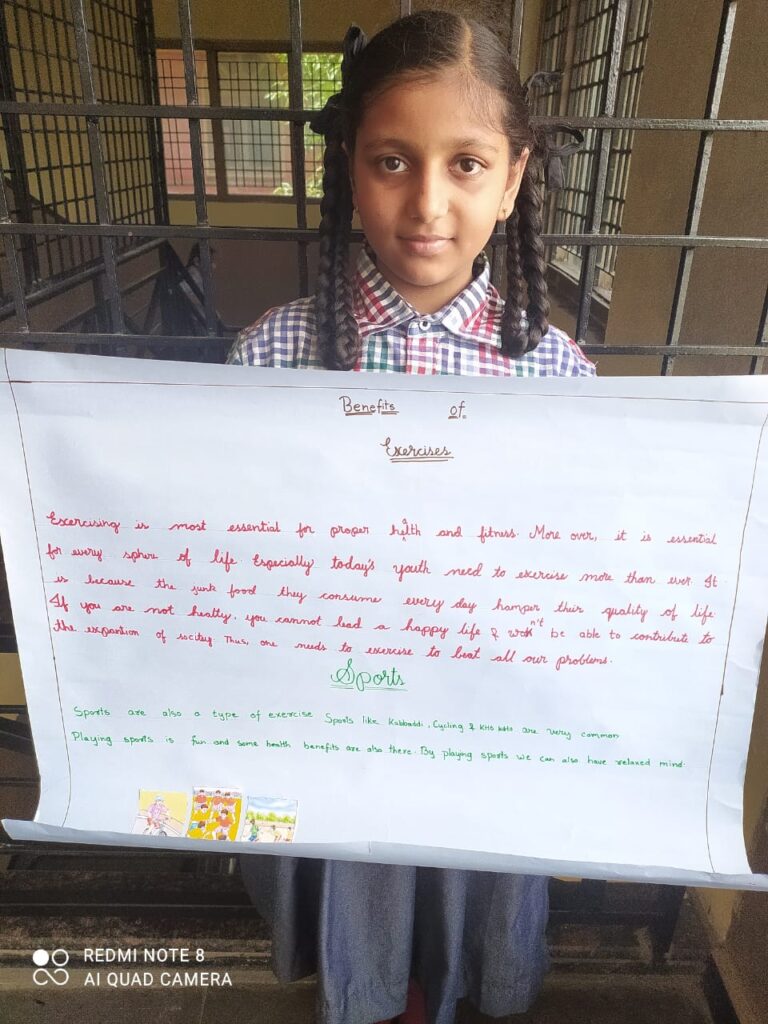 Benefits of
Exercises
Exercising is most essential for proper halth and fitness. More over, it is essential
for every sphire of life. Especially today's youth need to exercise more than ever. It
is because the junk food they consume every day hamper their quality of life.
If you are not healty. you cannot lead a happy life & won't be able to contribute to
the expantion of socitey Thus, one needs to exercise to beat all our problems.
Sports
Sports are also a type of exercise Sports like Kabbaddi, Cycling & KHO kHo are very common
Playing sports is fun and some health benefits are also there. By playing sports we can also have relaxed mind.
REDMI NOTE 8
AI QUAD CAMERA